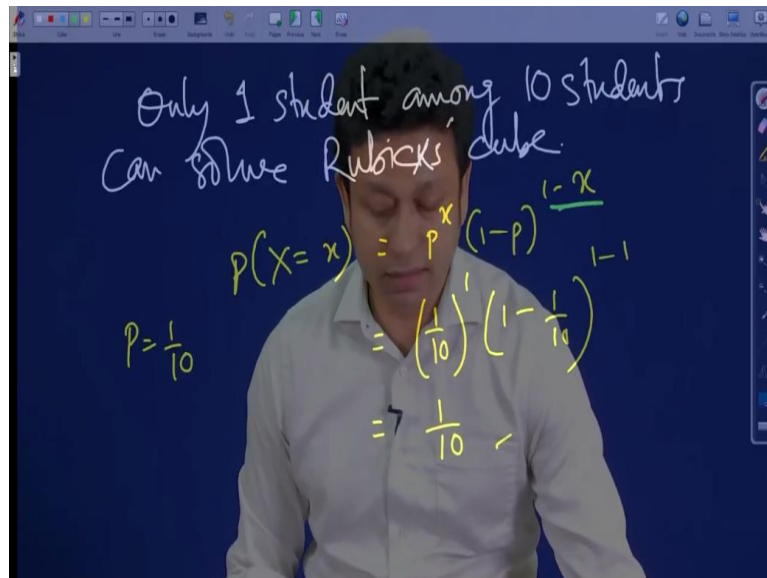 Only 1 student among 10 students
Can solve Rubicks' cube.
P(X = x) = p^x (1-p)^{1-x}
P = 1/10
= (1/10)^1 (1 - 1/10)^{1-1}
= 1/10